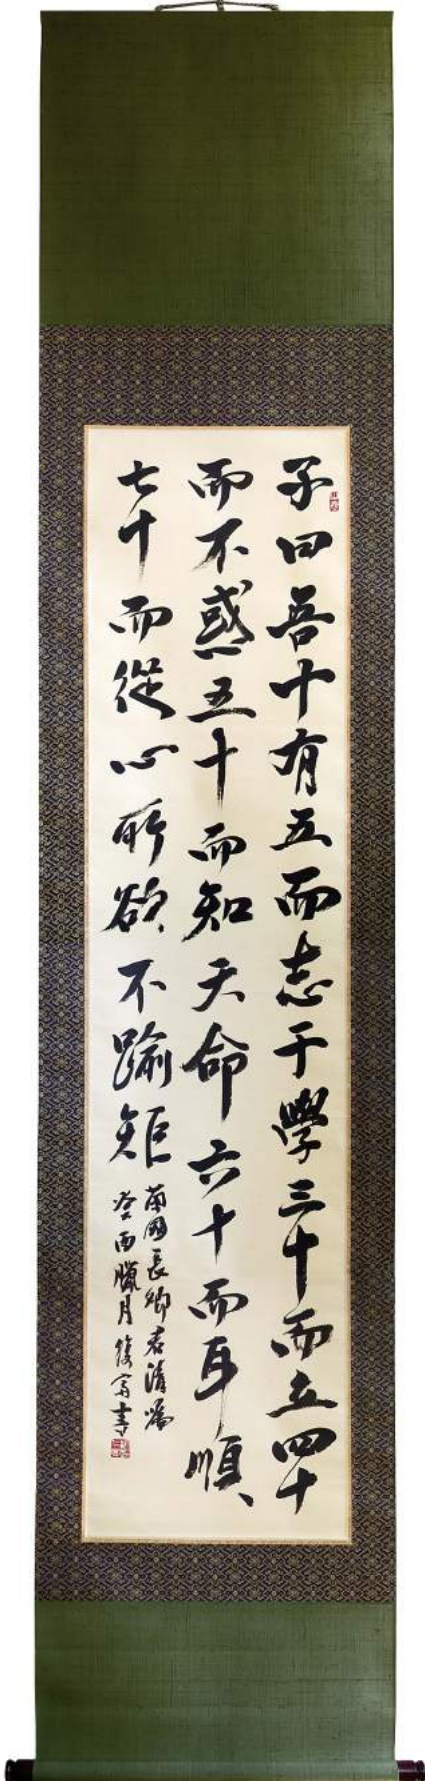 子曰吾十有五而志于學三十而立四十
而不惑五十而知天命六十而耳順
七十而從心所欲不踰矩
南國長卿君清屬
癸酉臘月復膏書